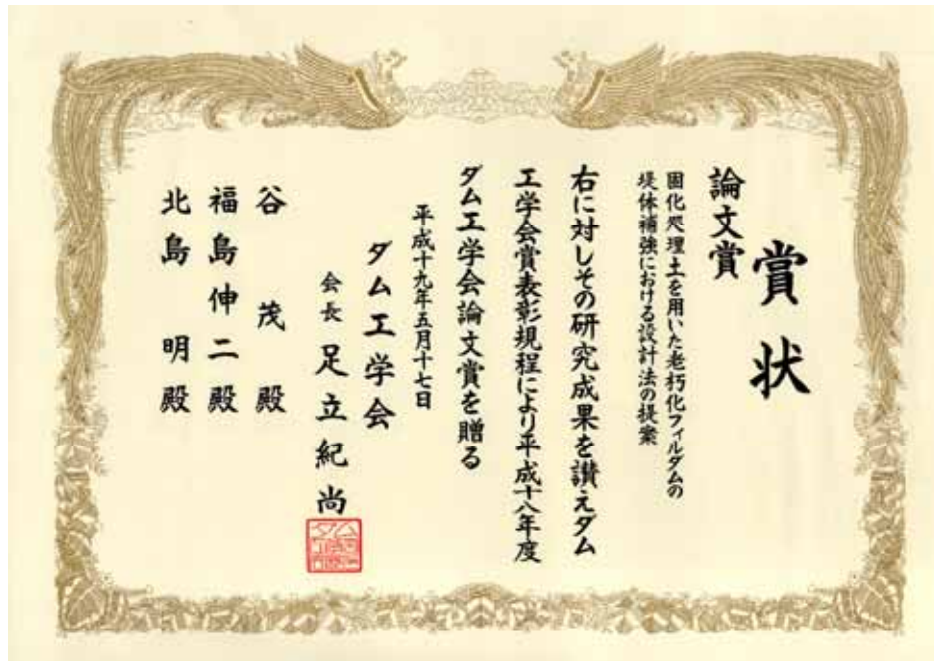 賞状
論文賞
固化処理土を用いた老朽化フィルダムの
堤体補強における設計法の提案
右に対しその研究成果を讃えダム
工学会賞表彰規程により平成十八年度
ダム工学会論文賞を贈る
平成十九年五月十七日
ダム工学会
会長 足立紀尚
谷 茂 殿
福島伸二殿
北島 明殿